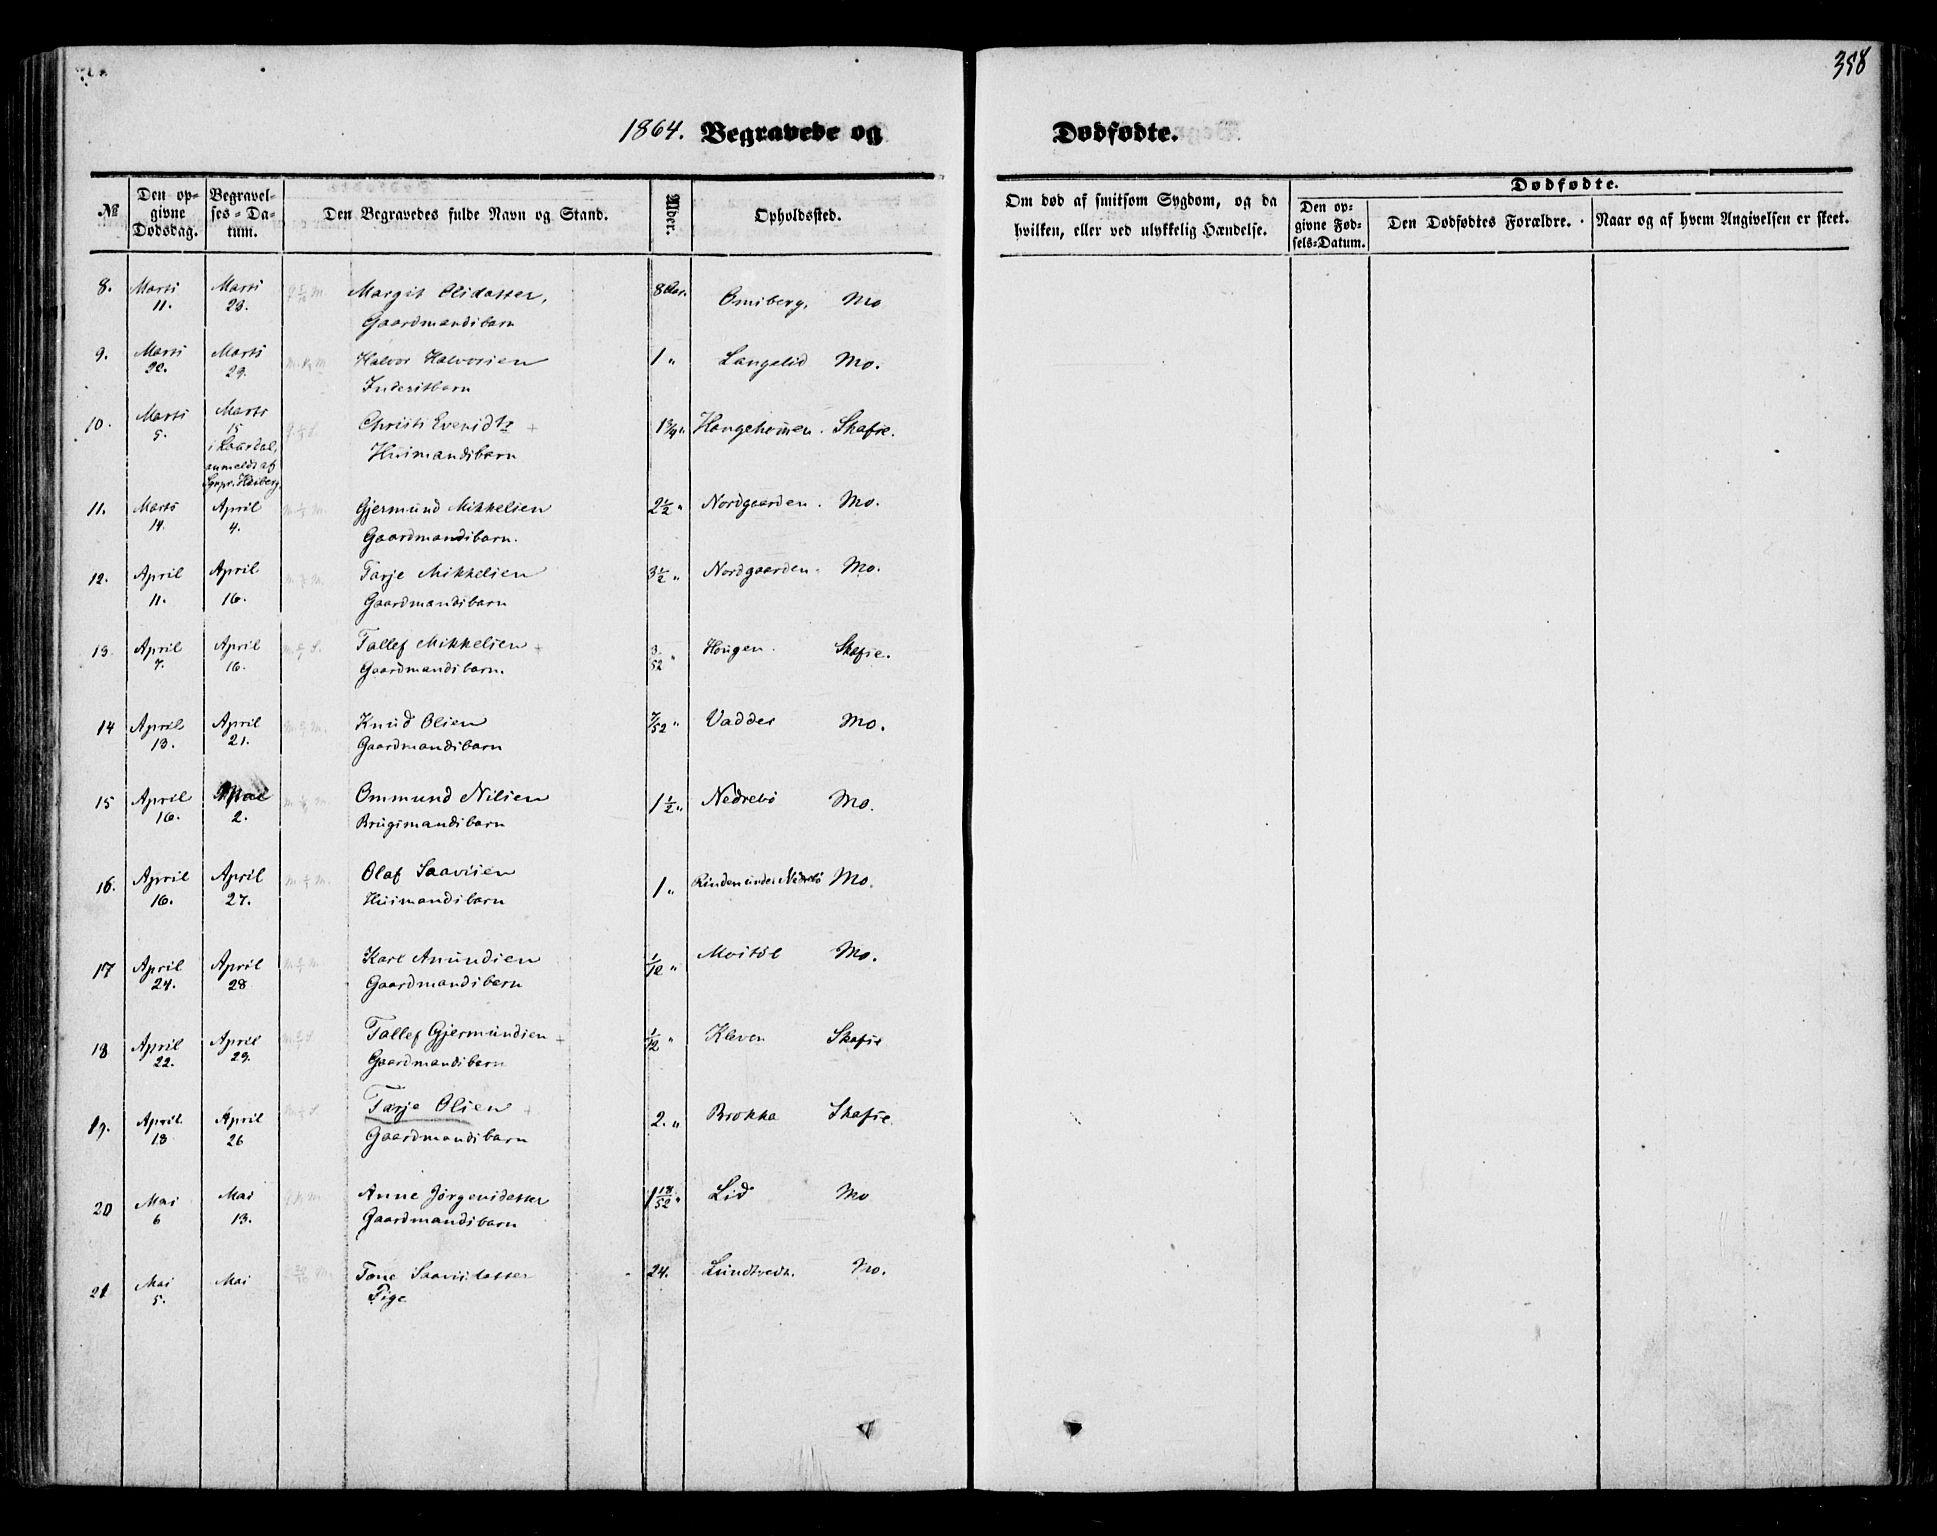 358
1864. Begravede og Dødfødte.
№ Den opgivne Dødsdag. Begravelses-Datum. Den Begravedes fulde Navn og Stand. Alder. Opholdssted. Om død af smitsom Sygdom, og da hvilken, eller ved ulykkelig Hændelse. Dødfødte. Den opgivne Fødsels-Datum. Den Dødfødtes Forældre. Naar og af hvem Angivelsen er skeet.
8. Marts Marts Margit Olsdatter, 8 Aar. Omiberg, Mo
11. 23. Gaardmandsbarn
9. Marts Marts Halvor Halvorsen 1 " Langelid Mo.
22. 29. Inderstbarn
10. Marts Marts Christi Evensdtr + 1¾ " Haugeholmen. Skafse.
5. 15 Huusmandsbarn
i Laurdal,
anmeldt af
Sgnpr. Heiberg
11. Marts April Gjermund Mikkelsen 2½ " Nordgaarden. Mo.
14. 4. Gaardmandsbarn.
12. April April Tarje Mikkelsen 3½ " Nordgaarden. Mo.
11. 16. Gaardmandsbarn
13. April April Tallef Mikkelsen + 3/52 " Haugen. Skafse.
7. 16. Gaardmandsbarn.
14 April April Knud Olsen 7/52 " Vadder Mo.
13. 21. Gaardmandsbarn
15 April Mai Ommund Nilsen 1½ " Nedrebö Mo.
16. 2. Brugsmandsbarn
16. April April Olaf Saavesen 1 " Rinden under Nedrebö Mo.
16. 27. Huusmandsbarn
17 April April Karl Amundsen 1/12 " Moistöl Mo.
24. 28 Gaardmandsbarn
18 April April Tallef Gjermundsen + 1/12 " Kleven Skafse
22. 29. Gaardmandsbarn
19. April April Tarje Olsen + 2. " Brokka Skafse.
13 26 Gaardmandsbarn
20 Mai Mai Anne Jörgensdatter 1 18/52 " Lid Mo
6 13. Gaardmandsbarn
21 Mai Mai Tone Saavesdatter 24. Lundtvedt. Mo.
5. Pige